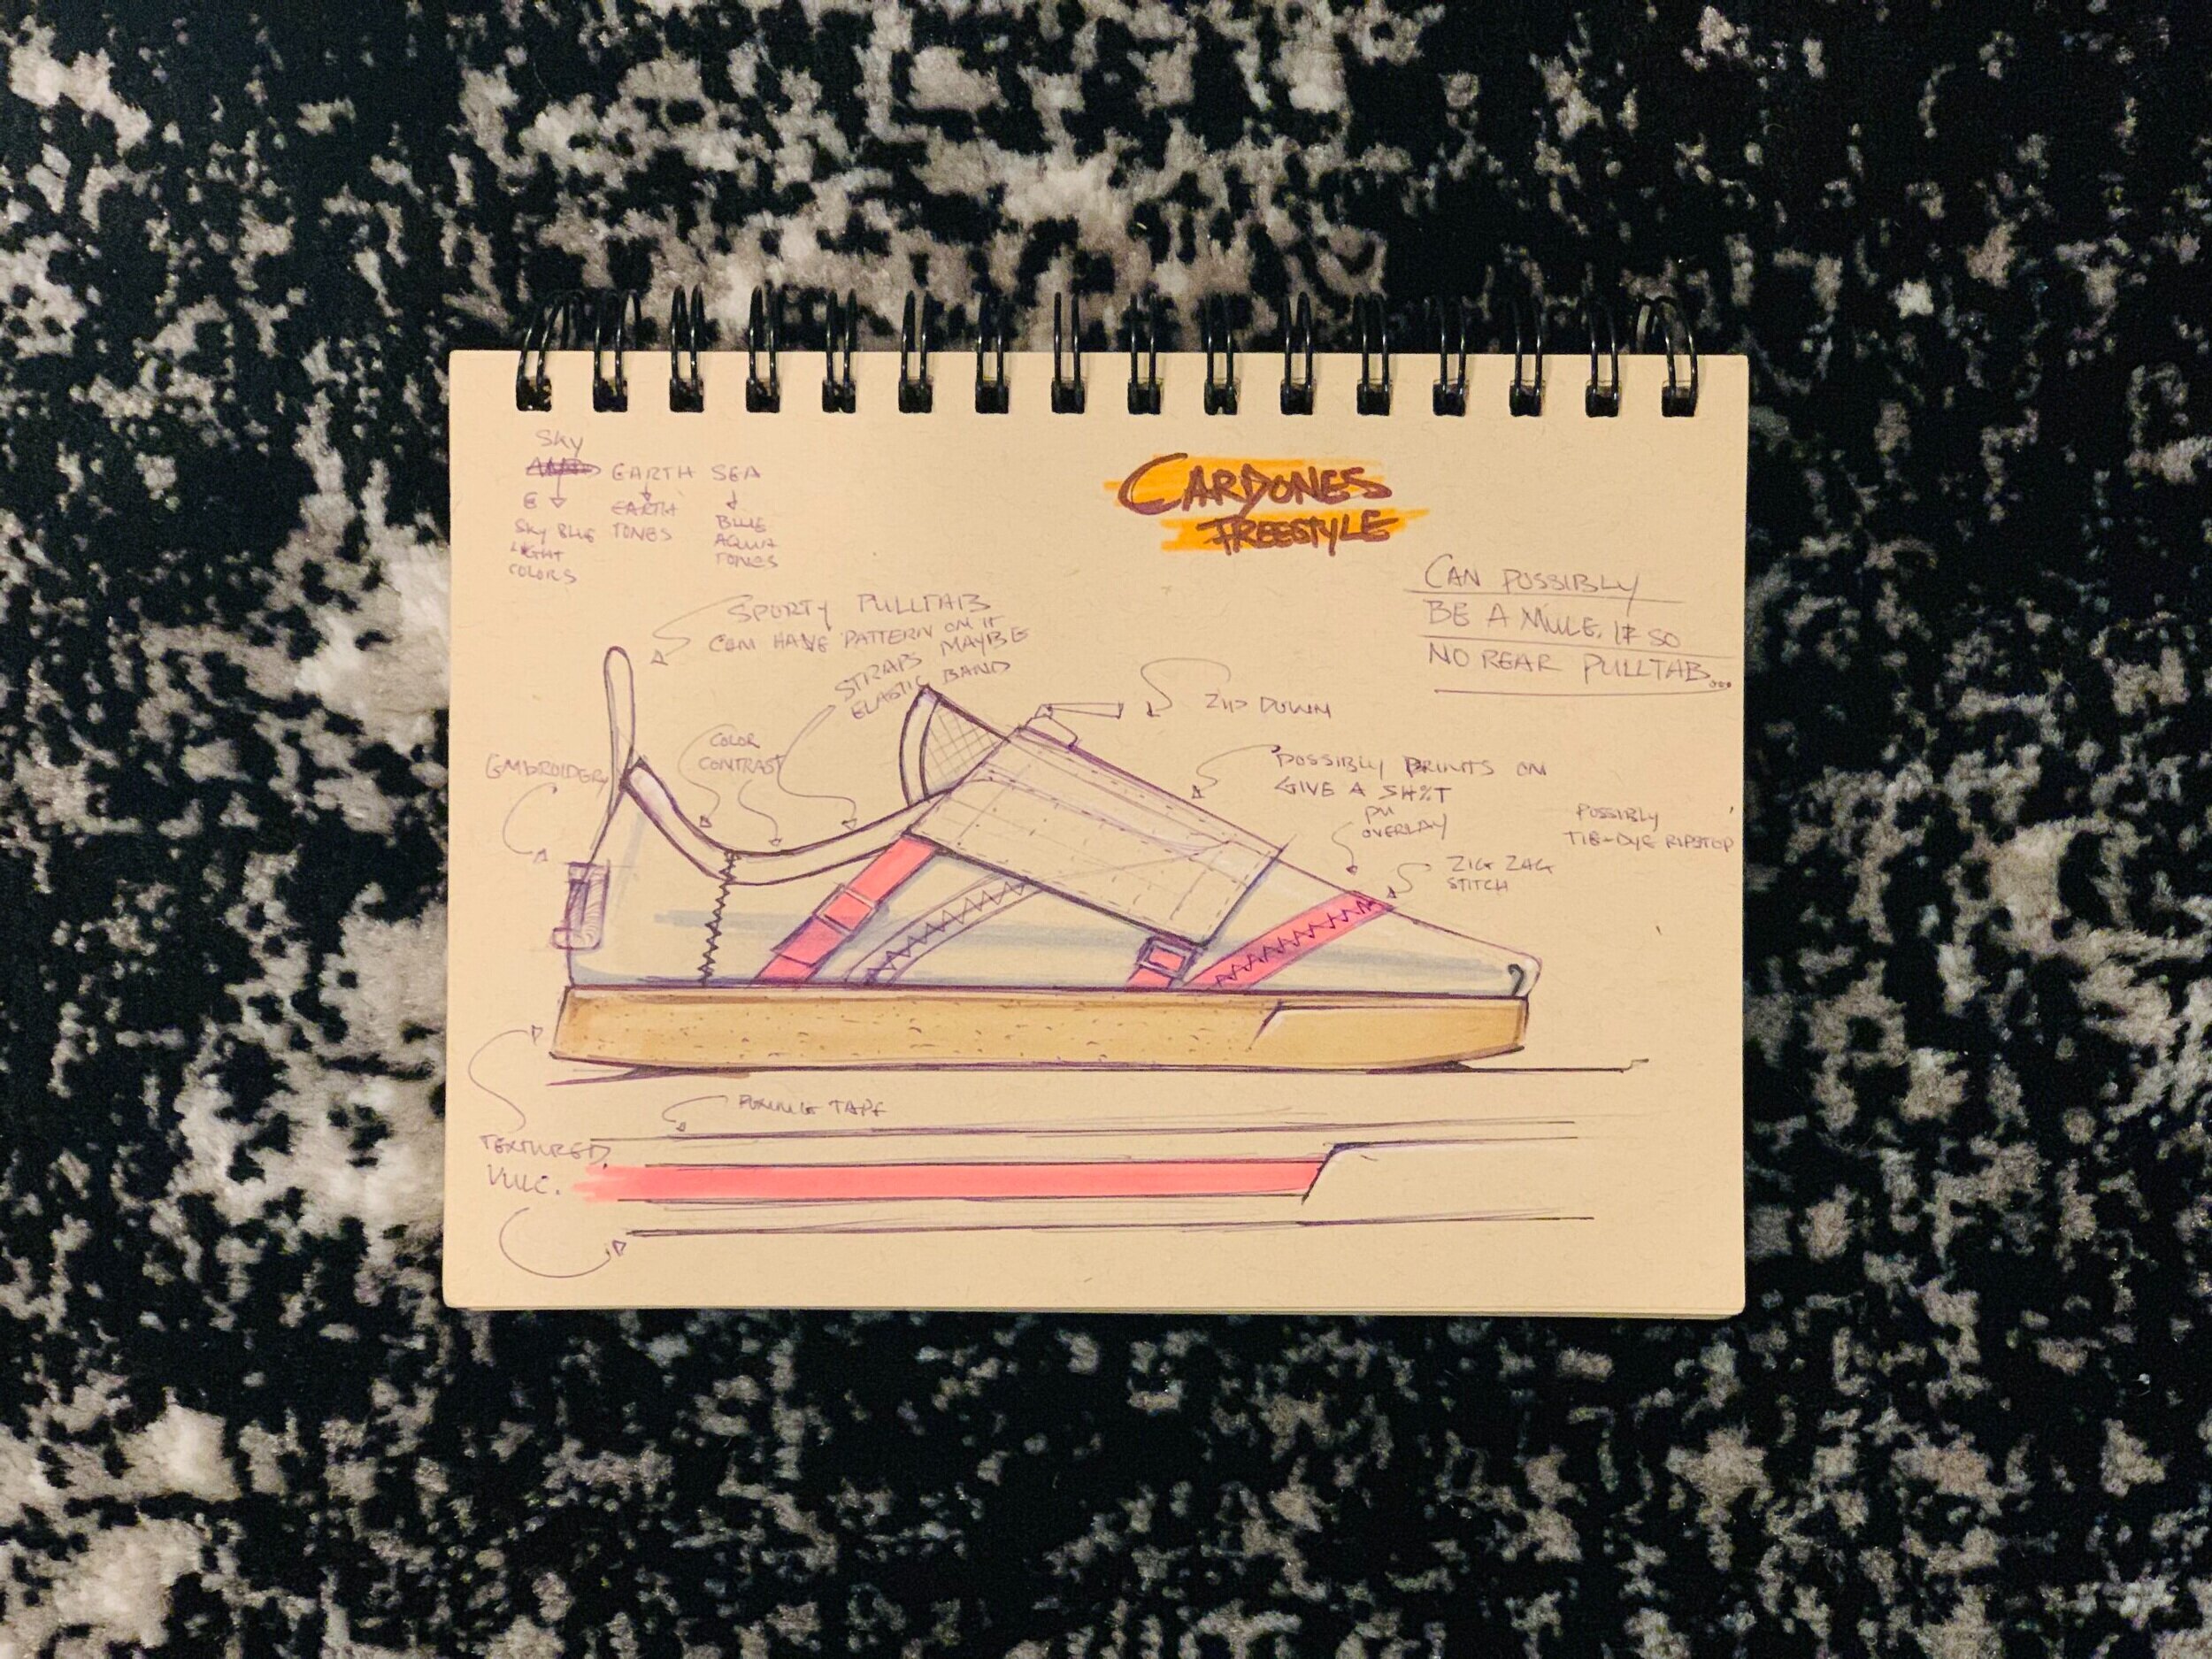 SKY
EARTH SEA
SKY BLUE
LIGHT
COLORS
EARTH
TONES
BLUE
AQUA
TONES
CARDONES
FREESTYLE
CAN POSSIBLY
BE A MULE, IF SO
NO REAR PULLTAB...
SPORTY PULLTAB
CAN HAVE PATTERN ON IT
MAYBE
STRAPS
ELASTIC BAND
ZIP DOWN
COLOR
CONTRAST
EMBROIDERY
POSSIBLY PRINTS ON
GIVE A SH%T
PU
OVERLAY
POSSIBLY
TIE-DYE RIPSTOP
ZIG ZAG
STITCH
TAPE
TEXTURED
VULC.